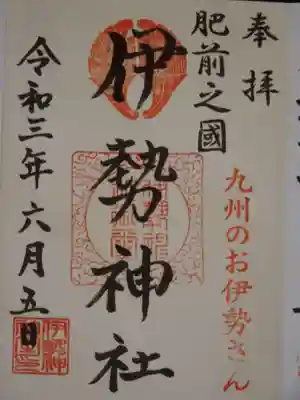 奉拝
肥前之國
九州のお伊勢さん
伊勢神社
令和三年六月五日